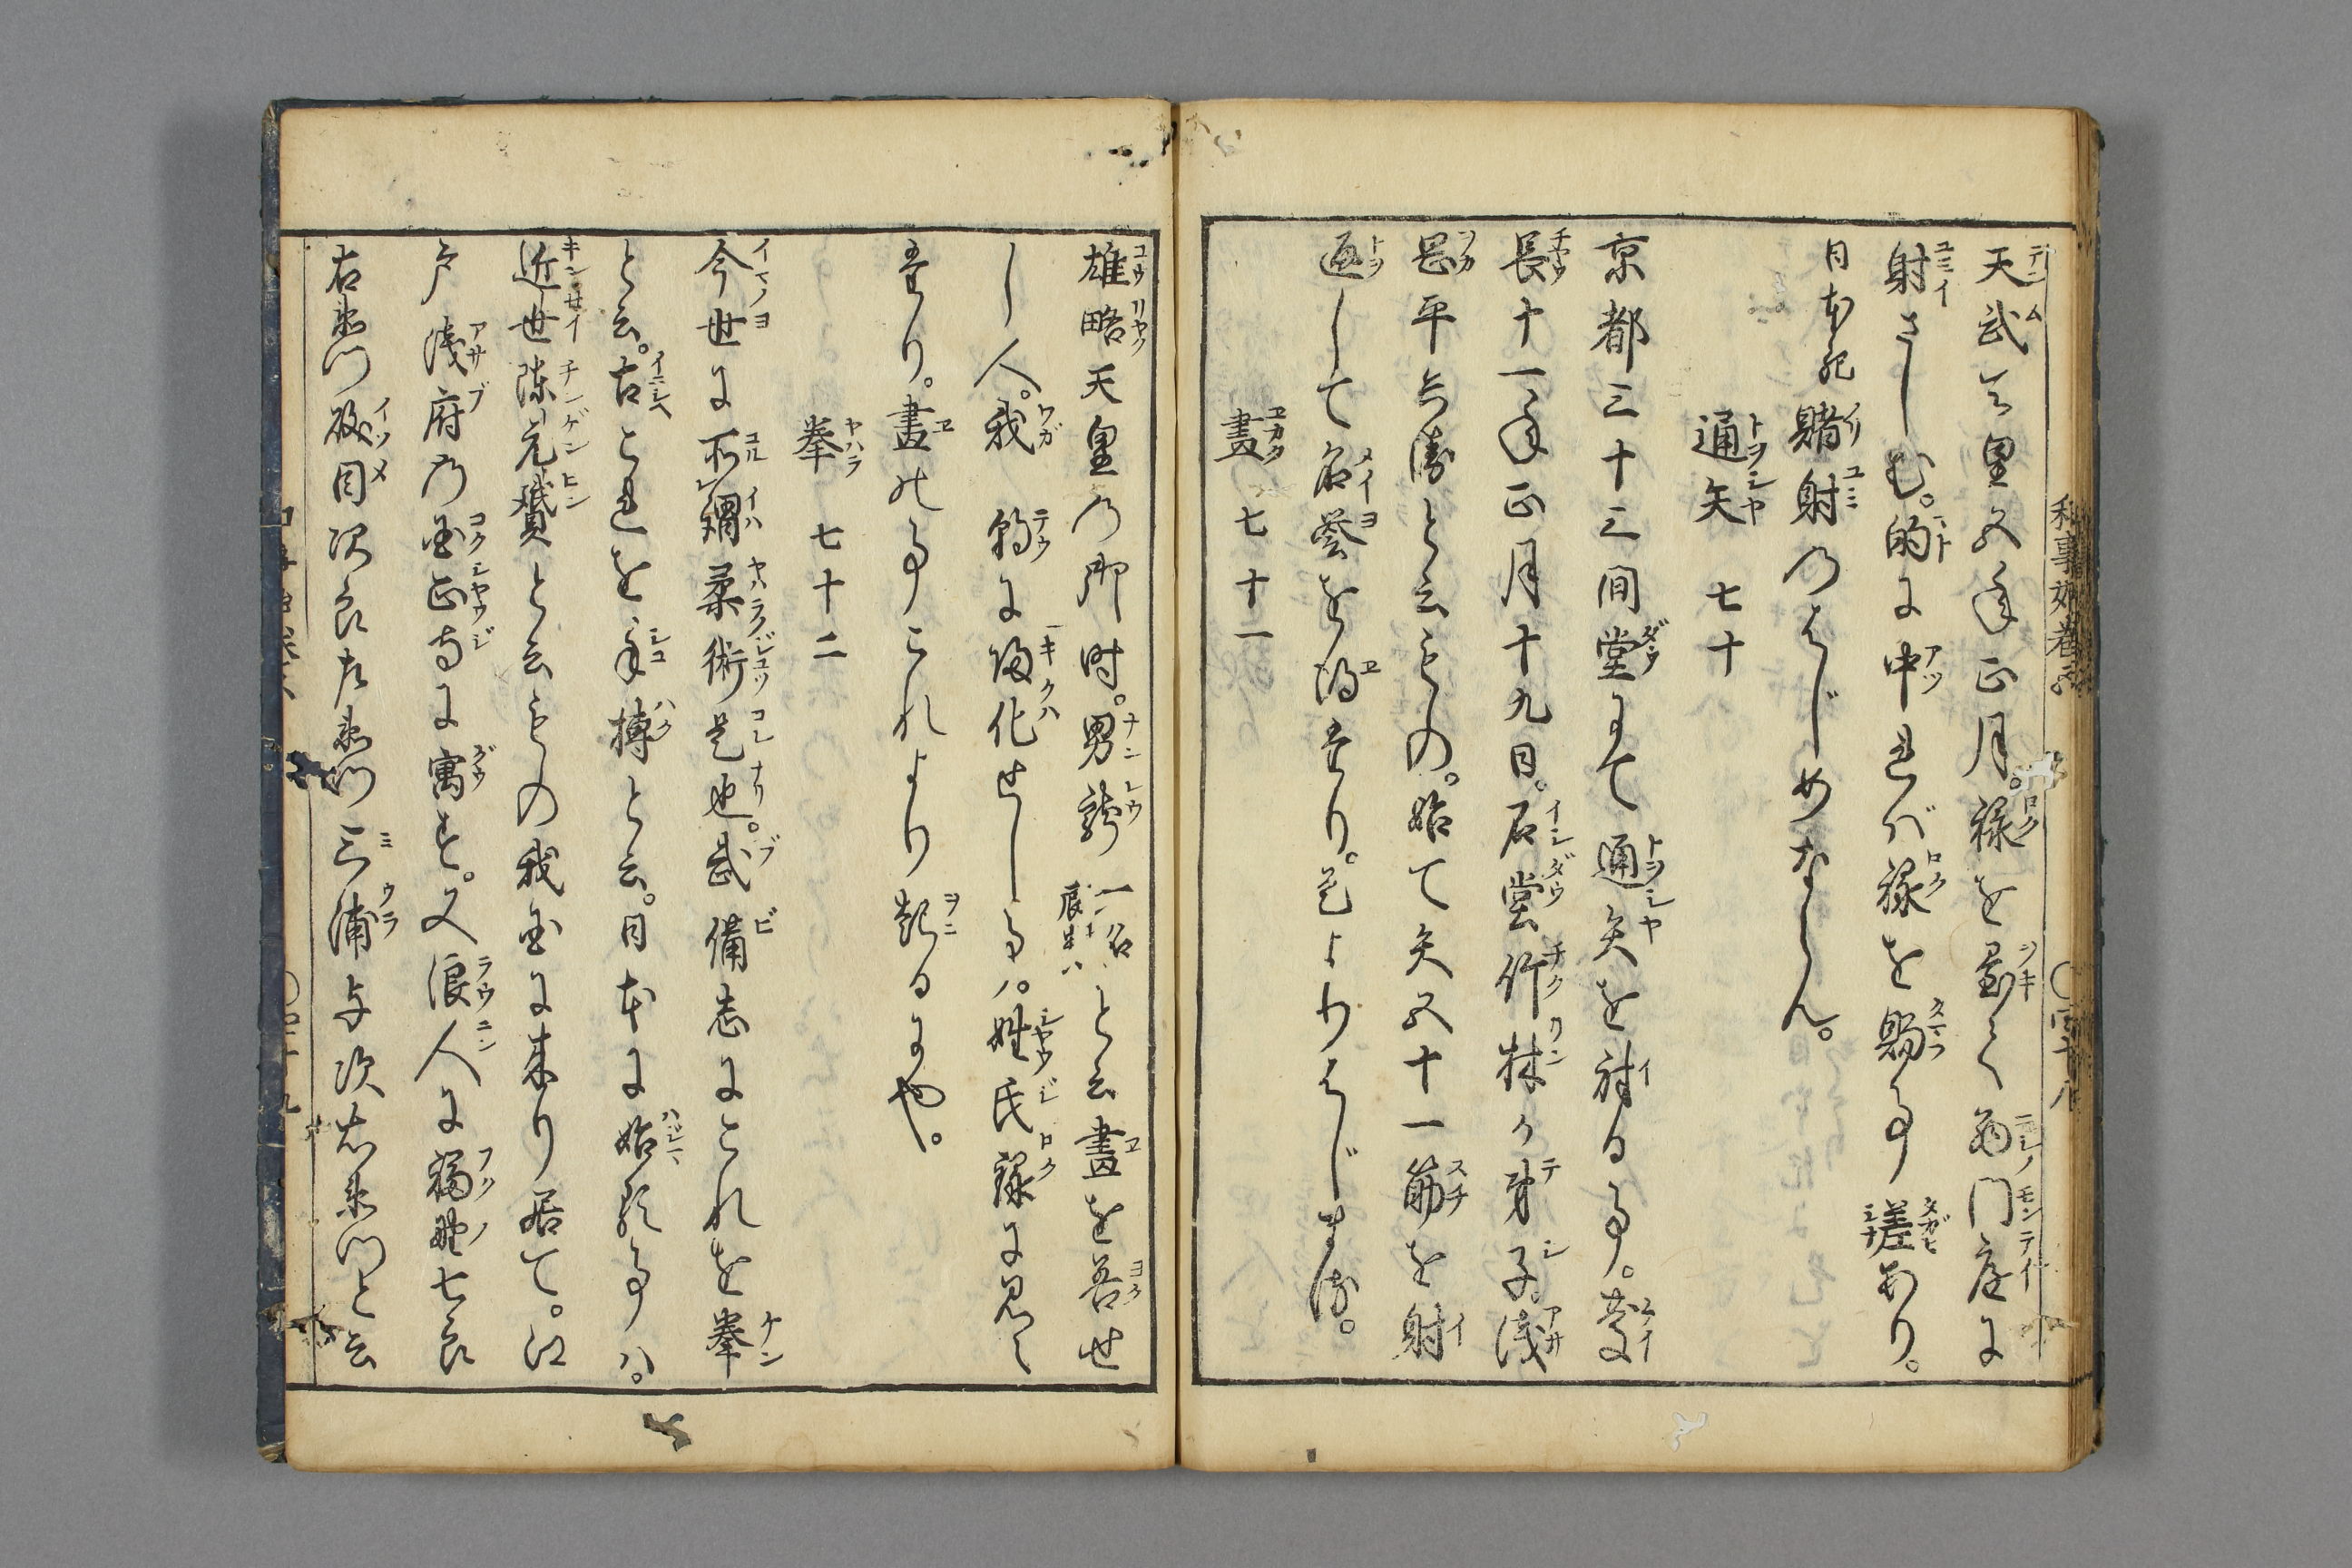 天武天皇五年正月。禄を置て西門庭に
射さしむ。的に中れバ禄を賜る事差あり。
日本紀賭射のはじめならん。
通矢 七十
京都三十三間堂にて通矢を射る事。慶
長十一年正月十九日。石堂竹林が弟子。浅
岡平兵衛と云もの。始て矢五十一筋を射
通して名誉を得たり。是よりはじまる。
畫 七十一
和事始巻六
〇四十八
雄略天皇の御時。男龍一名辰貴と云畫を善せ
し人。我朝に帰化せし事ハ。姓氏録に見え
たり。畫の事これより起るにや。
拳 七十二
今世に所謂柔術是也。武備志にこれを拳
と云。古これを手搏と云。日本に始る事ハ。
近世陳元贇と云もの我国に来り居て。江
戸浅府の国正寺に寓す。又浪人に福野七郎
右衛門磯貝次郎左衛門三浦与次右衛門と云